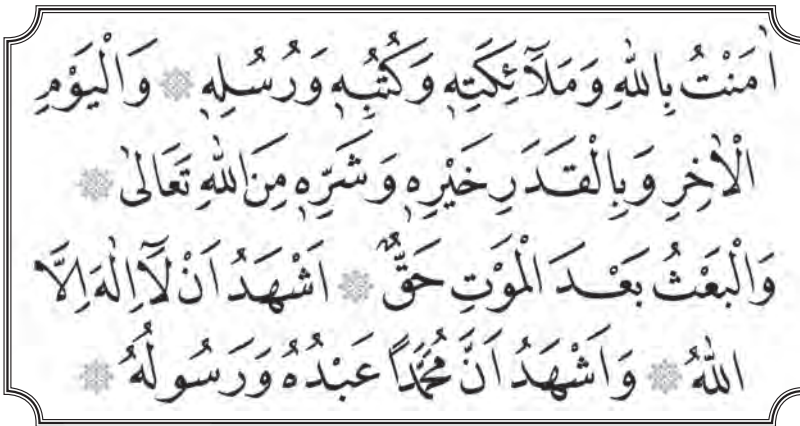 اٰمَنْتُ بِاللّٰهِ وَمَلَآئِكَتِهٖ وَكُتُبِهٖ وَرُسُلِهٖ ۞ وَالْيَوْمِ
الْاٰخِرِ وَبِالْقَدَرِ خَيْرِهٖ وَشَرِّهٖ مِنَ اللّٰهِ تَعَالٰى ۞
وَالْبَعْثُ بَعْدَ الْمَوْتِ حَقٌّ ۞ اَشْهَدُ اَنْ لَٓا اِلٰهَ اِلَّا
اللّٰهُ ۞ وَاَشْهَدُ اَنَّ مُحَمَّدًا عَبْدُهُ وَرَسُولُهُ ۞